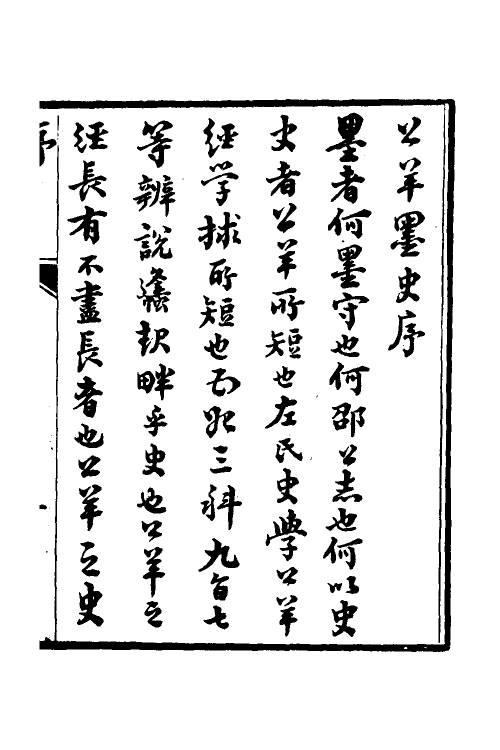 公羊墨史序
墨者何墨守也何邵公志也何以史
史者公羊所短也左氏史學公羊
經學掞所短也而貺三科九旨七
等辨說龤軼畔乎史也公羊之
經長有不盡長者也公羊之史
序